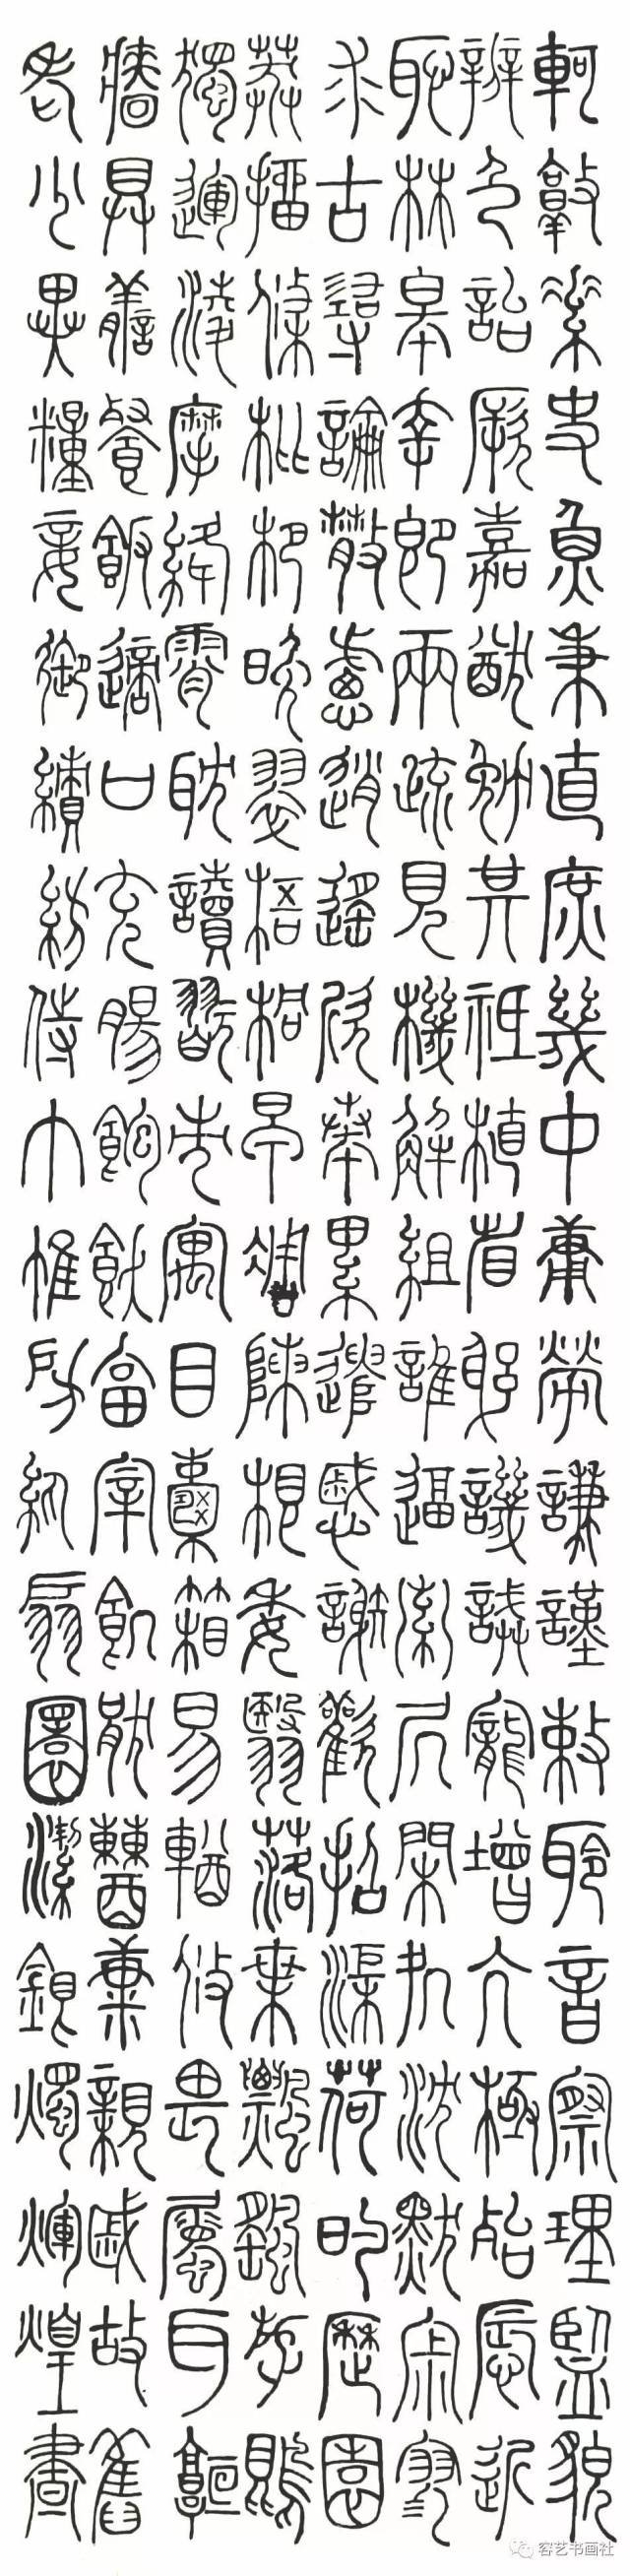 軻敦素史魚秉直庶幾中庸勞謙謹敕聆音察理監貌
辨色詒厥嘉猷勉其祗植省躬譏誡寵增亢極殆辱近
恥林皋幸即兩疏見機解組誰逼索居閑處沈默寂寥
求古尋論散慮逍遙欣奏累遣慼謝歡招渠荷的歷園
莽抽條枇杷晚翠梧桐早凋陳根委翳落葉飄颻遊鵾
獨運淩摩絳霄耽讀翫市寓目囊箱易輶攸畏屬耳垣
牆具膳餐飯適口充腸飽飫烹宰飢猒糟糠親戚故舊
老少異糧妾御績紡侍巾帷房紈扇圓潔銀燭煒煌晝
容艺书画社